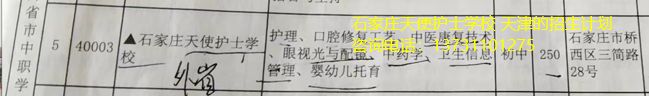 省市中职学
5
40003
▲石家庄天使护士学
校
外省
护理、口腔修复工艺、中医康复技术
、眼视光与配镜、中药学、卫生信息
管理、婴幼儿托育
初中
250
石家庄市桥
西区三简路
28号
石家庄天使护士学校 天津的招生计划
咨询电话:13731101275